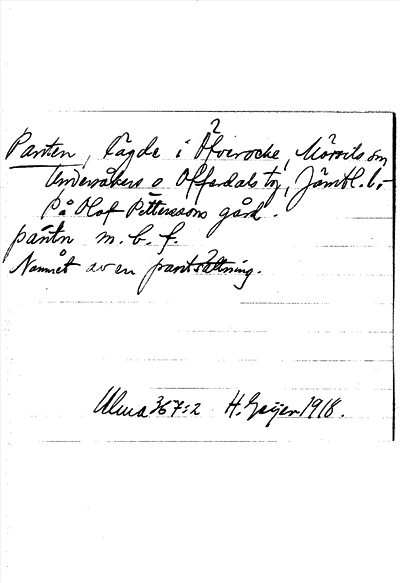 Panten, lägde i Öfverocke, Mörsils sn
Undersåkers o. Offerdals tg, Jämtl. l.
På Olof Petterssons gård.
pántn m. b. f.
Namnet av en pantsättning.
Ulma 367:2 H. Geijer 1918.